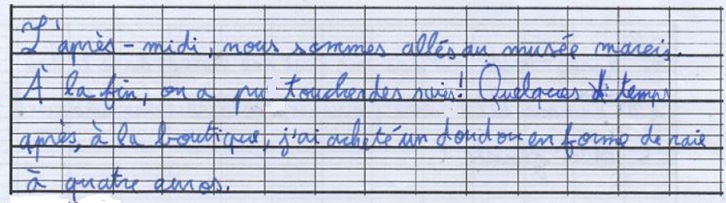 L'après-midi, nous sommes allés au musée mareis.
À la fin, on a pu toucher des raies! Quelques temps
après, à la boutique, j'ai acheté un doudou en forme de raie
à quatre euros.